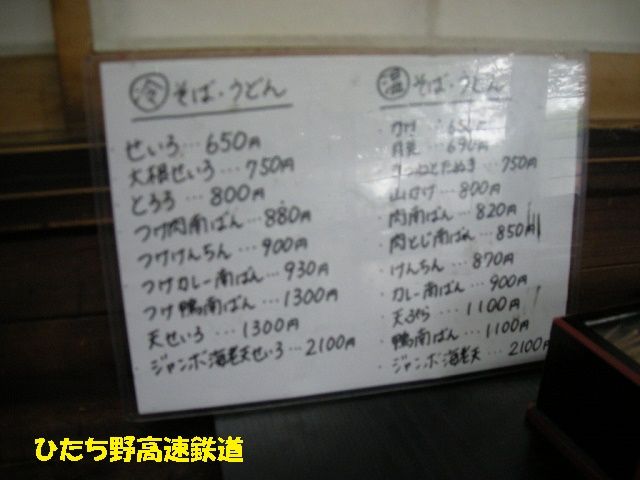 冷 そば・うどん
せいろ…650円
大根せいろ…750円
とろろ…800円
つけ肉南ばん…880円
つけけんちん…900円
つけカレー南ばん…930円
つけ鴨南ばん…1300円
天せいろ…1300円
ジャンボ海老天せいろ…2100円
温 そば・うどん
かけ…650円
月見…690円
きつねとたぬき…750円
山かけ…800円
肉南ばん…820円
肉とじ南ばん…850円
けんちん…870円
カレー南ばん…900円
天ぷら…1100円
鴨南ばん…1100円
ジャンボ海老天…2100円
ひたち野高速鉄道